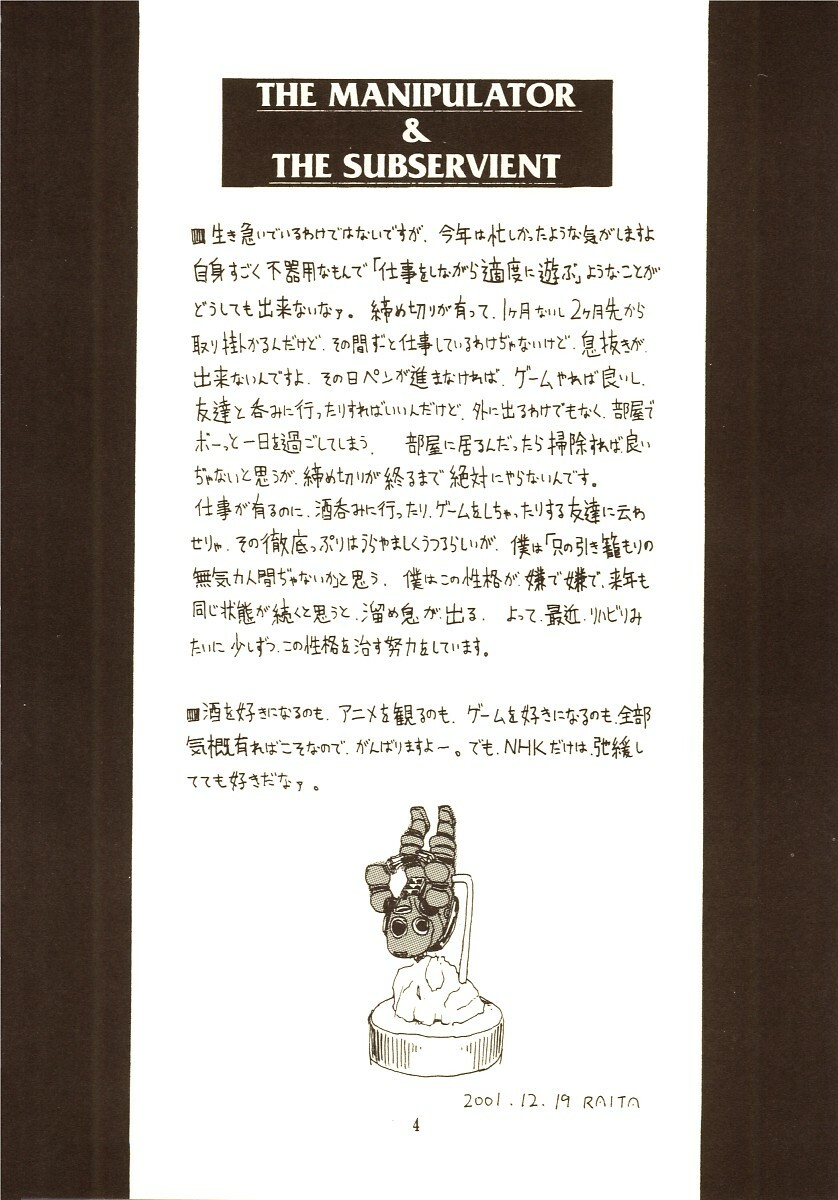 THE MANIPULATOR
&
THE SUBSERVIENT
生き急いでいるわけではないですが、今年は忙しかったような気がしますよ
自身すごく不器用なもんで「仕事をしながら適度に遊ぶ」ようなことが
どうしても出来ないなァ。締め切りが有って、1ヶ月ないし2ヶ月先から
取り掛かるんだけど、その間ずっと仕事しているわけぢゃないけど、息抜きが
出来ないんですよ、その日ペンが進まなければ、ゲームやれば良いし、
友達と呑みに行ったりすればいいんだけど、外に出るわけでもなく、部屋で
ボーっと一日を過ごしてしまう、部屋に居るんだったら掃除すれば良い
ぢゃないと思うが、締め切りが終るまで絶対にやらないんです。
仕事が有るのに、酒呑みに行ったり、ゲームをしちゃったりする友達に云わ
せりゃ、その徹底っぷりはうらやましくうつるらしいが、僕は「只の引き籠もりの
無気力人間ぢゃないか」と思う、僕はこの性格が、嫌で嫌で、来年も
同じ状態が続くと思うと、溜め息が出る、よって、最近、リハビリみ
たいに少しずつ、この性格を治す努力をしています。
酒を好きになるのも、アニメを観るのも、ゲームを好きになるのも、全部
気概有ればこそなので、がんばりますよー。でも、NHKだけは、弛緩し
てても好きだなァ。
2001.12.19 RAITA
4